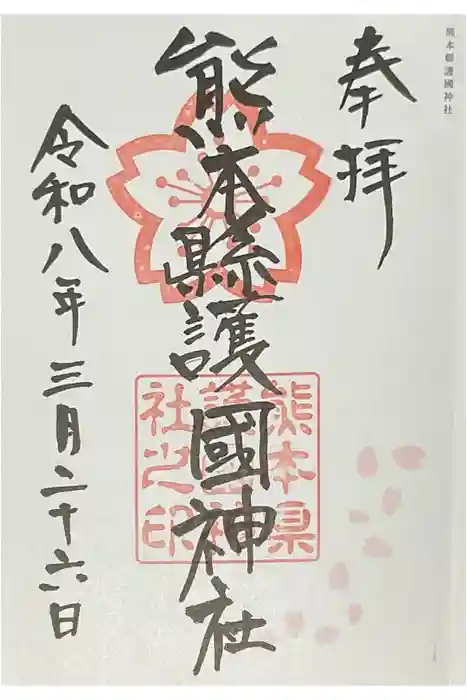 熊本縣護國神社
奉拝
熊本縣護國神社
熊本県
護國神
社之印
令和八年三月二十六日